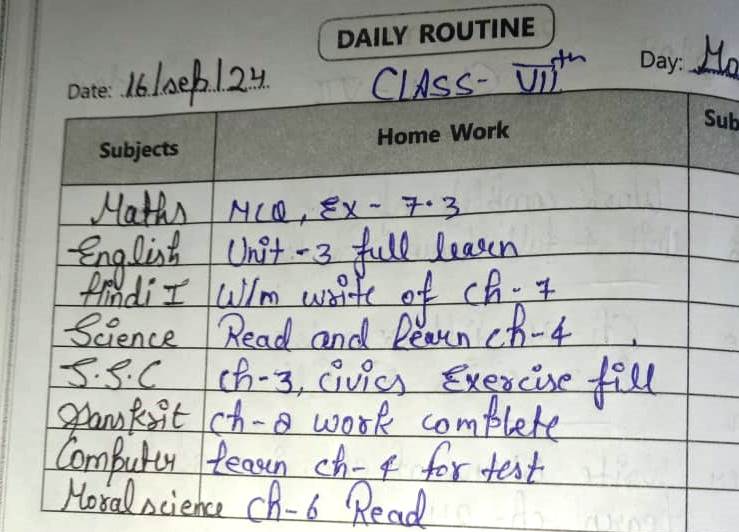 DAILY ROUTINE
Date: 16/sep/24 Day: Mo
CLASS- VIIth
Subjects Home Work Sub
Maths MCQ, Ex - 7.3
English Unit -3 full learn
Hindi I W/m write of ch-7
Science Read and learn ch-4
S.S.C ch-3, civics Exercise fill
Sanskrit ch-8 work complete
Computer learn ch-4 for test
Moral science Ch-6 Read